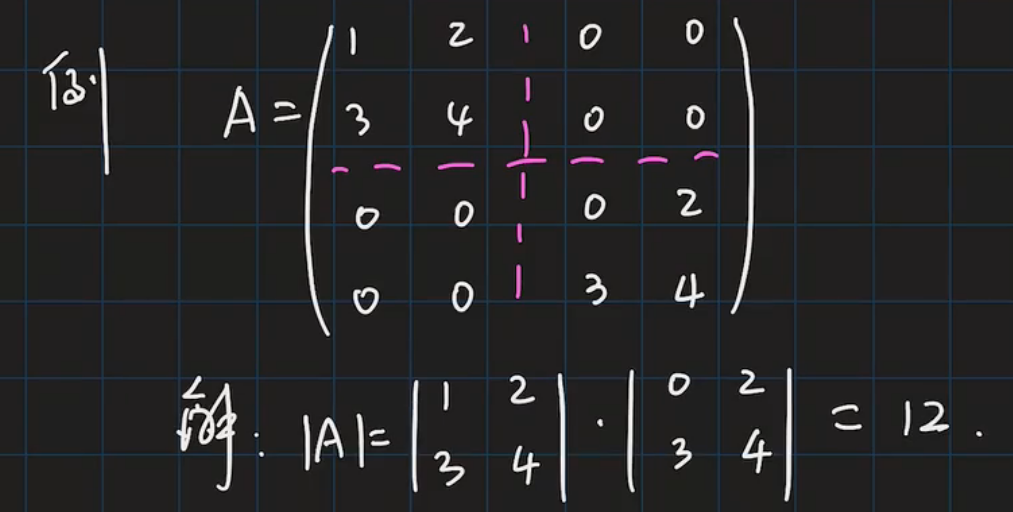 例
A = ( 1 2 0 0
3 4 0 0
0 0 0 2
0 0 3 4 )
解: |A| = | 1 2 | · | 0 2 | = 12.
| 3 4 | | 3 4 |